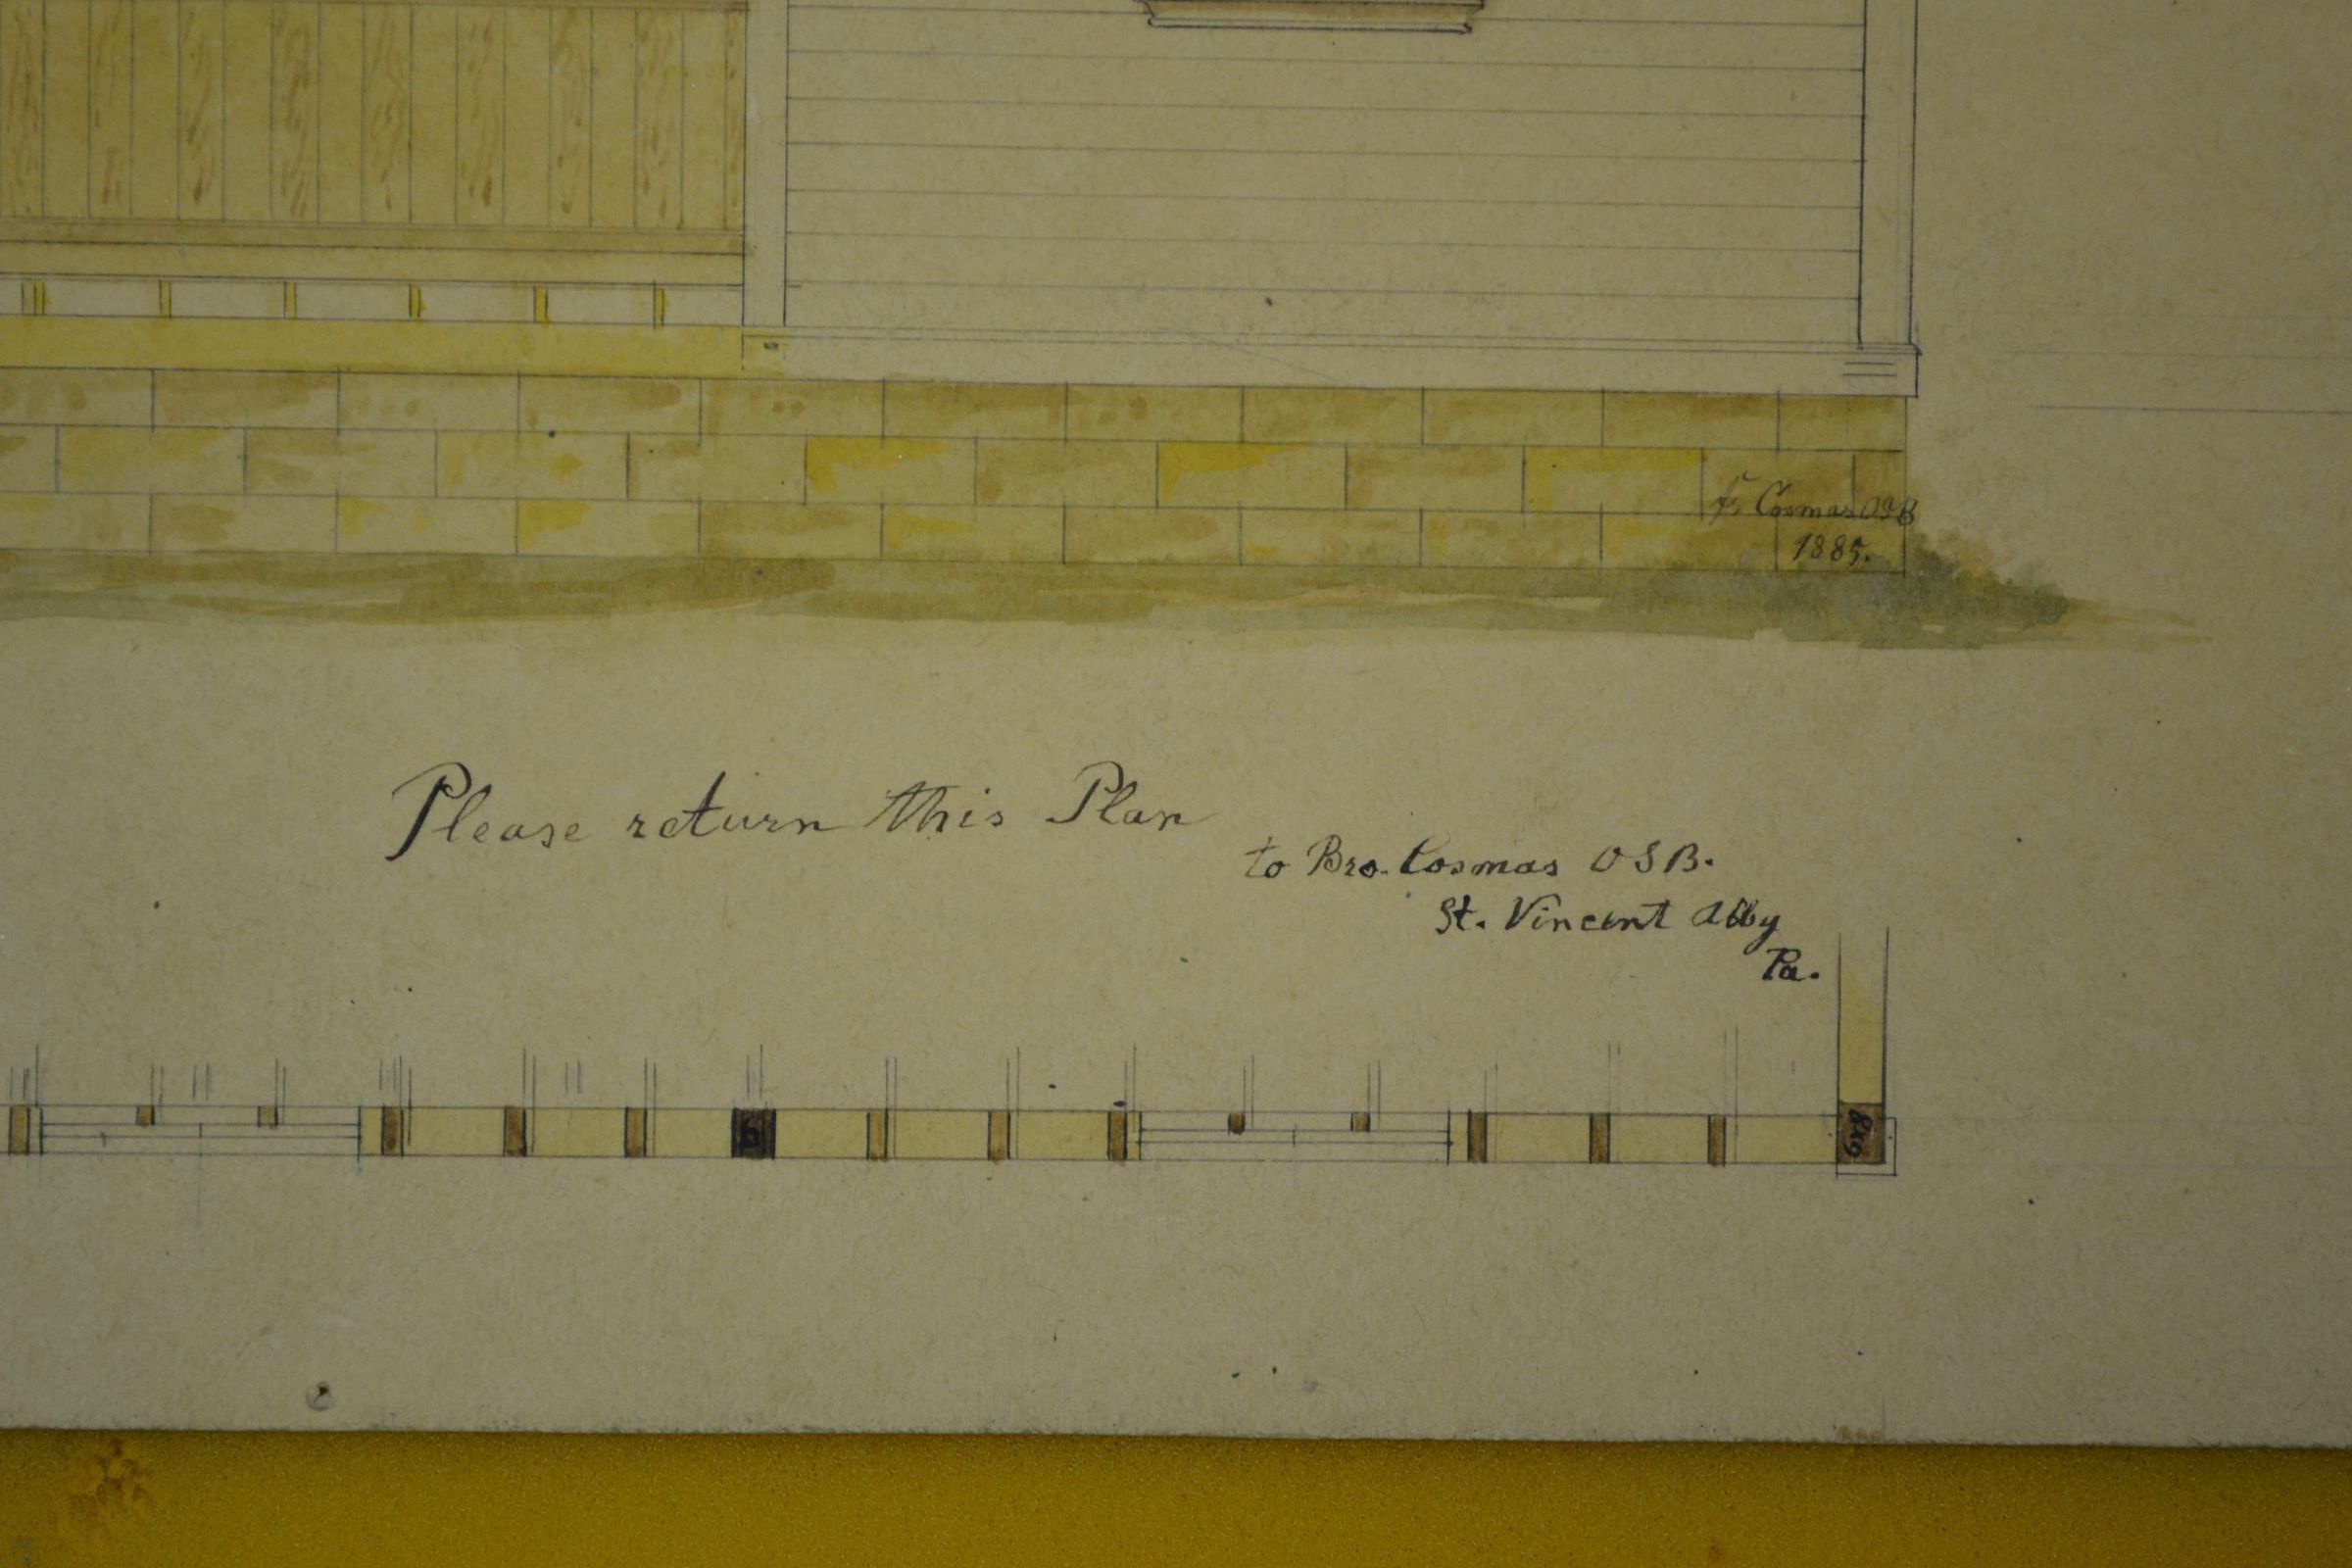 F. Cosmas OSB
1885.
Please return this Plan
to Bro. Cosmas OSB.
St. Vincent Abby
Pa.
6
8x9